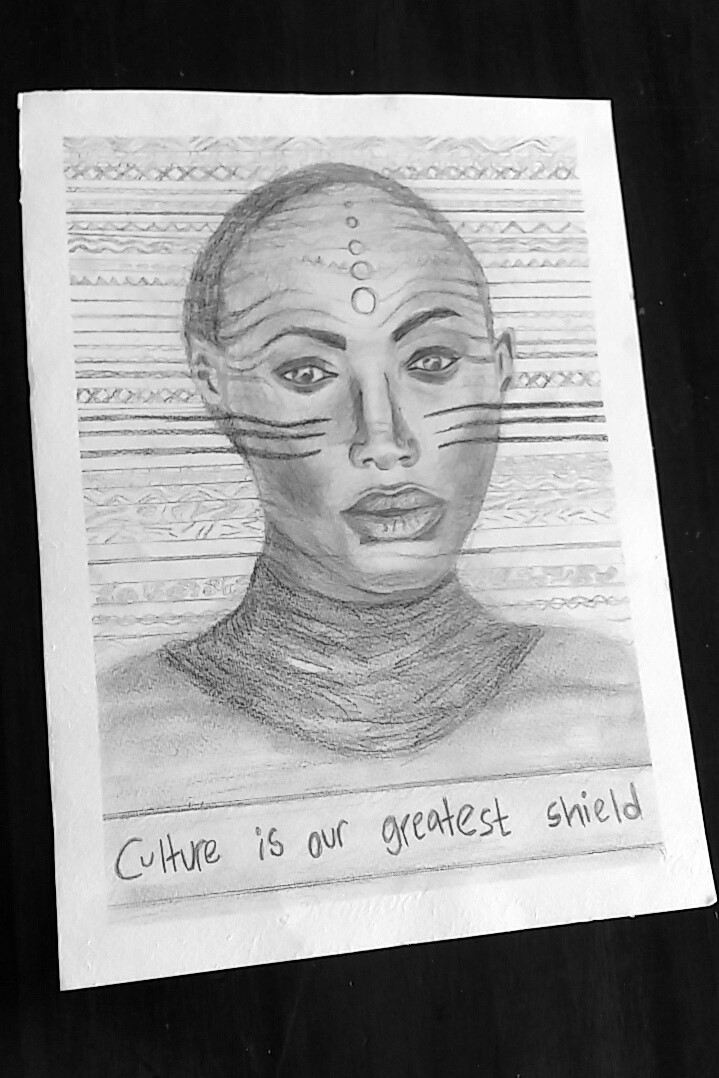 Culture is our greatest shield